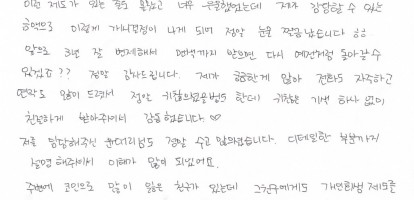 이런 제도가 있는 줄도 몰랐고 너무 우울했었는데 제가 감당할 수 있는
금액으로 이렇게 개시결정이 나게 되어 정말 눈물 찔끔났습니다 ㅎㅎ
앞으로 3년 잘 변제해서 면책까지 받으면 다시 예전처럼 돌아갈 수
있겠죠?? 정말 감사드립니다. 제가 궁금한게 많아 전화도 자주하고
연락도 많이 드려서 정말 귀찮으셨을법도 한데 귀찮은 기색 하나 없이
친절하게 받아주셔서 감동했습니다 ♡
저를 담당해주신 대리님도 정말 수고 많으셨습니다. 디테일한 부분까지
설명 해주셔서 이해가 많이 되었어요.
주변에 코인으로 많이 잃은 친구가 있는데 그친구에게도 개인회생 제도를